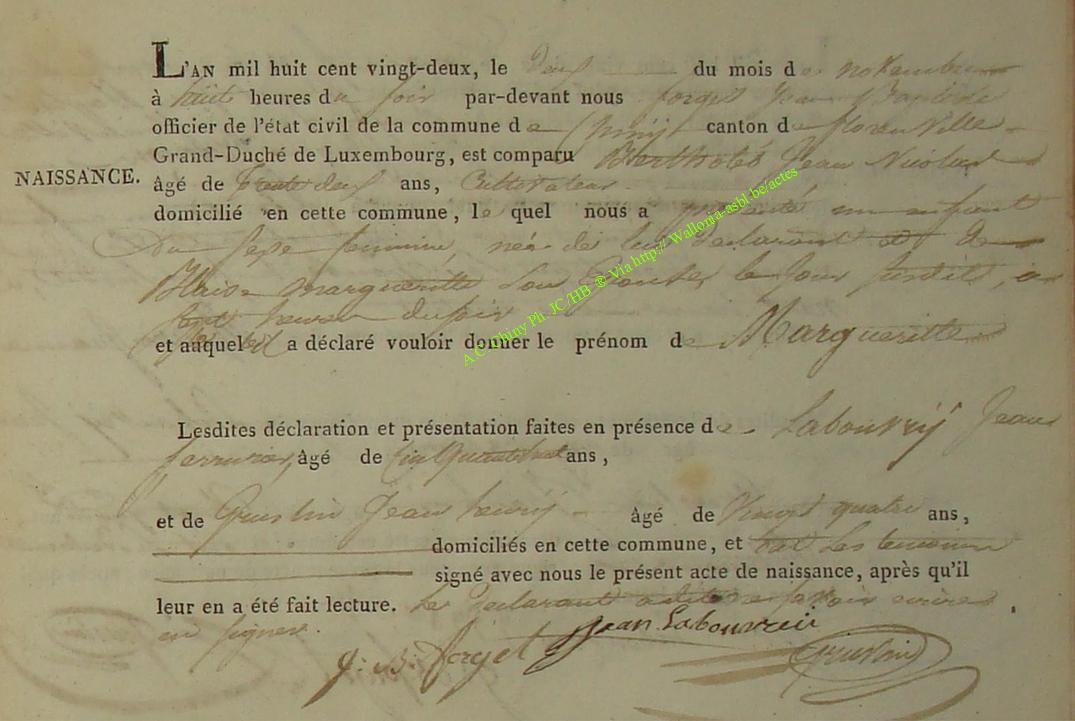 L'AN mil huit cent vingt-deux, le Deux du mois de novembre
à huit heures du soir par-devant nous forget Jean Baptiste
officier de l'état civil de la commune de Chiny canton de florenville
Grand-Duché de Luxembourg, est comparu Bertholet Jean Nicolas
NAISSANCE. âgé de trente deux ans, Cultivateur
domicilié en cette commune, le quel nous a présenté un enfant
Du sexe feminin, née de lui Déclarant et de
margueritte Son Epouse, le jour susdit, à
sept heures du soir
et auquel il a déclaré vouloir donner le prénom de Margueritte
Lesdites déclaration et présentation faites en présence de Labouvrij Jean
âgé de ans,
et de Jean henrij âgé de Vingt quatre ans,
domiciliés en cette commune, et ont Les temoins
signé avec nous le présent acte de naissance, après qu'il
leur en a été fait lecture. Le Declarant a dit ne savoir ecrire
en signer.
j: B: forget Jean Labouvrij
A.C. Chiny Ph JC/HB ® Via http:// Wallonia-asbl.be/actes